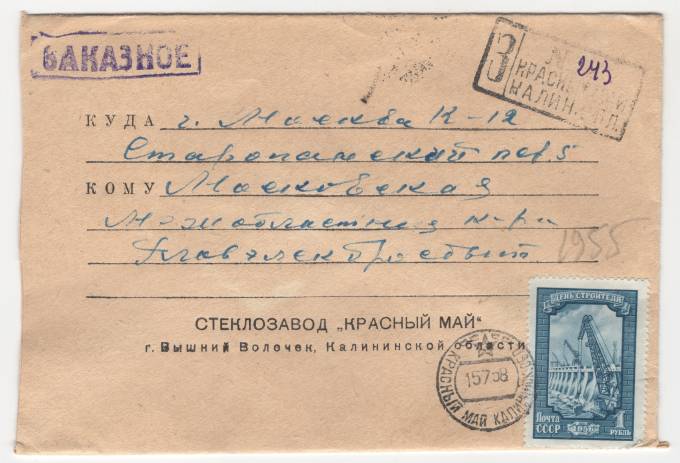 ЗАКАЗНОЕ
З
№ 243
КРАСН МАЙ
КАЛИН. ОБЛ.
КУДА г. Москва К-12
Старопанский пер. 5
КОМУ Московская
Межобластная к-ра
Главэлектросбыт
1955
СТЕКЛОЗАВОД „КРАСНЫЙ МАЙ“
г. Вышний Волочек, Калининской области
КРАСНЫЙ МАЙ КАЛИН
15758
ДЕНЬ СТРОИТЕЛЯ
Почта
СССР
1956
1
РУБЛЬ